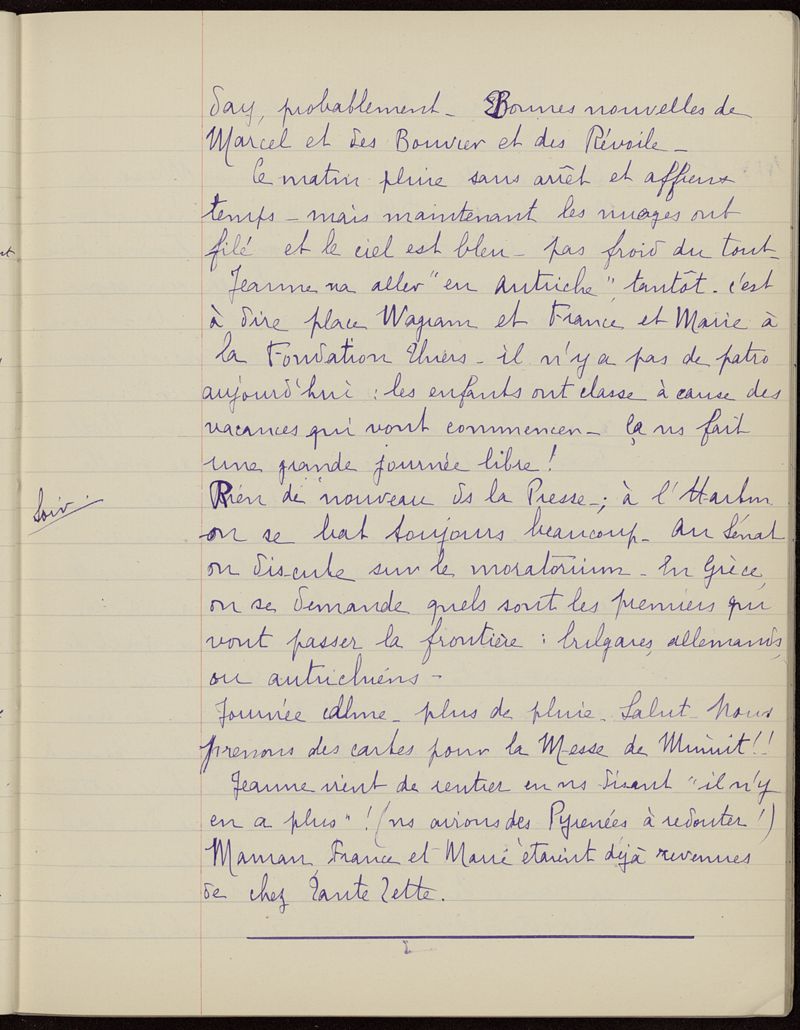 day, probablement - Bonnes nouvelles de
Marcel et des Bouvier et des Révoile -
Ce matin pluie sans arrêt et affreux
temps - mais maintenant les nuages ont
filé et le ciel est bleu - pas froid du tout -
Jeanne va aller "en Autriche", tantôt - c'est
à dire place Wagram et France et Marie à
la Fondation Thiers - il n'y a pas de patro
aujourd'hui : les enfants ont classe à cause des
vacances qui vont commencer - Ça ns fait
une grande journée libre !
Soir -
Rien de nouveau ds la Presse - ; à l'Hartm
on se bat toujours beaucoup - Au Sénat
on discute sur le moratorium - En Grèce,
on se demande quels sont les premiers qui
vont passer la frontière : bulgares, allemands,
ou autrichiens -
Journée calme - plus de pluie - Salut - Nous
prenons des cartes pour la Messe de Minuit !!
Jeanne vient de rentrer en ns disant "il n'y
en a plus" ! (ns avions des Pyrenées à redouter !)
Maman, France et Marie étaient déjà revenues
de chez Tante Zette.